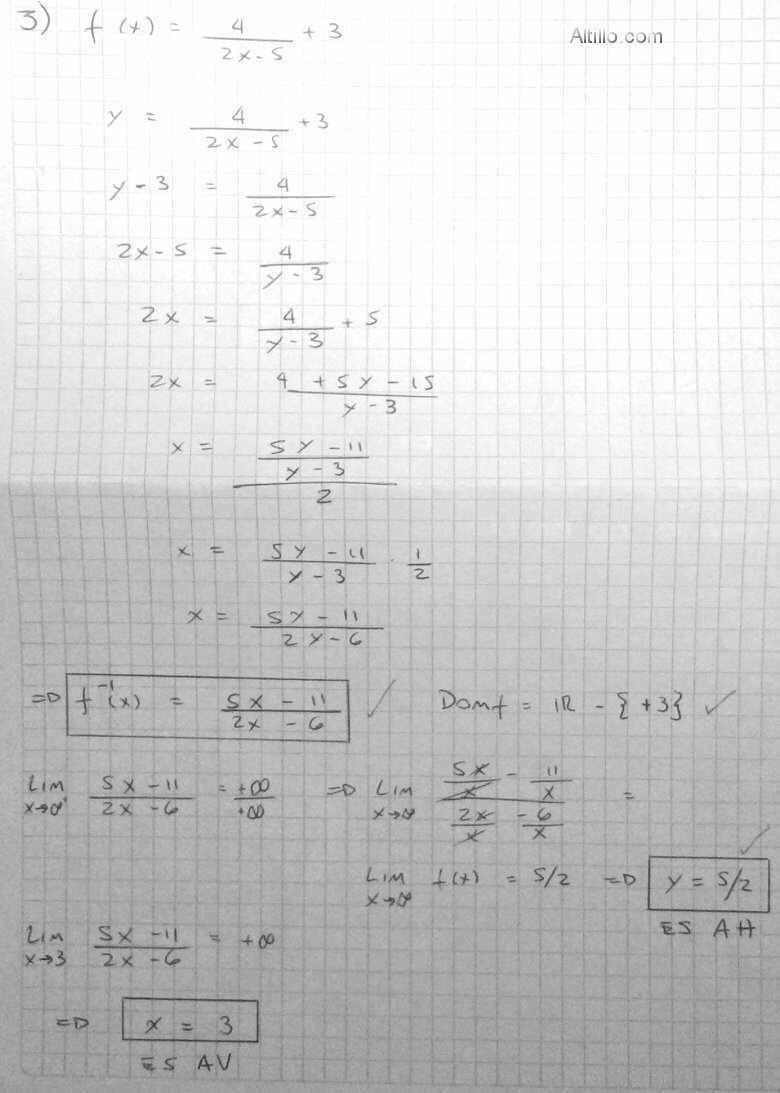 3) f(x) = 4 / (2x - 5) + 3
Altillo.com
y = 4 / (2x - 5) + 3
y - 3 = 4 / (2x - 5)
2x - 5 = 4 / (y - 3)
2x = 4 / (y - 3) + 5
2x = (4 + 5y - 15) / (y - 3)
x = ((5y - 11) / (y - 3)) / 2
x = (5y - 11) / (y - 3) · 1/2
x = (5y - 11) / (2y - 6)
=D f⁻¹(x) = (5x - 11) / (2x - 6) ✓ Domf = IR - {+3} ✓
Lim x→∞ (5x - 11) / (2x - 6) = +∞ / +∞ =D Lim x→∞ (5x/x - 11/x) / (2x/x - 6/x) =
Lim x→∞ f(x) = 5/2 =D y = 5/2 ✓
ES AH
Lim x→3 (5x - 11) / (2x - 6) = +∞
=D x = 3
ES AV